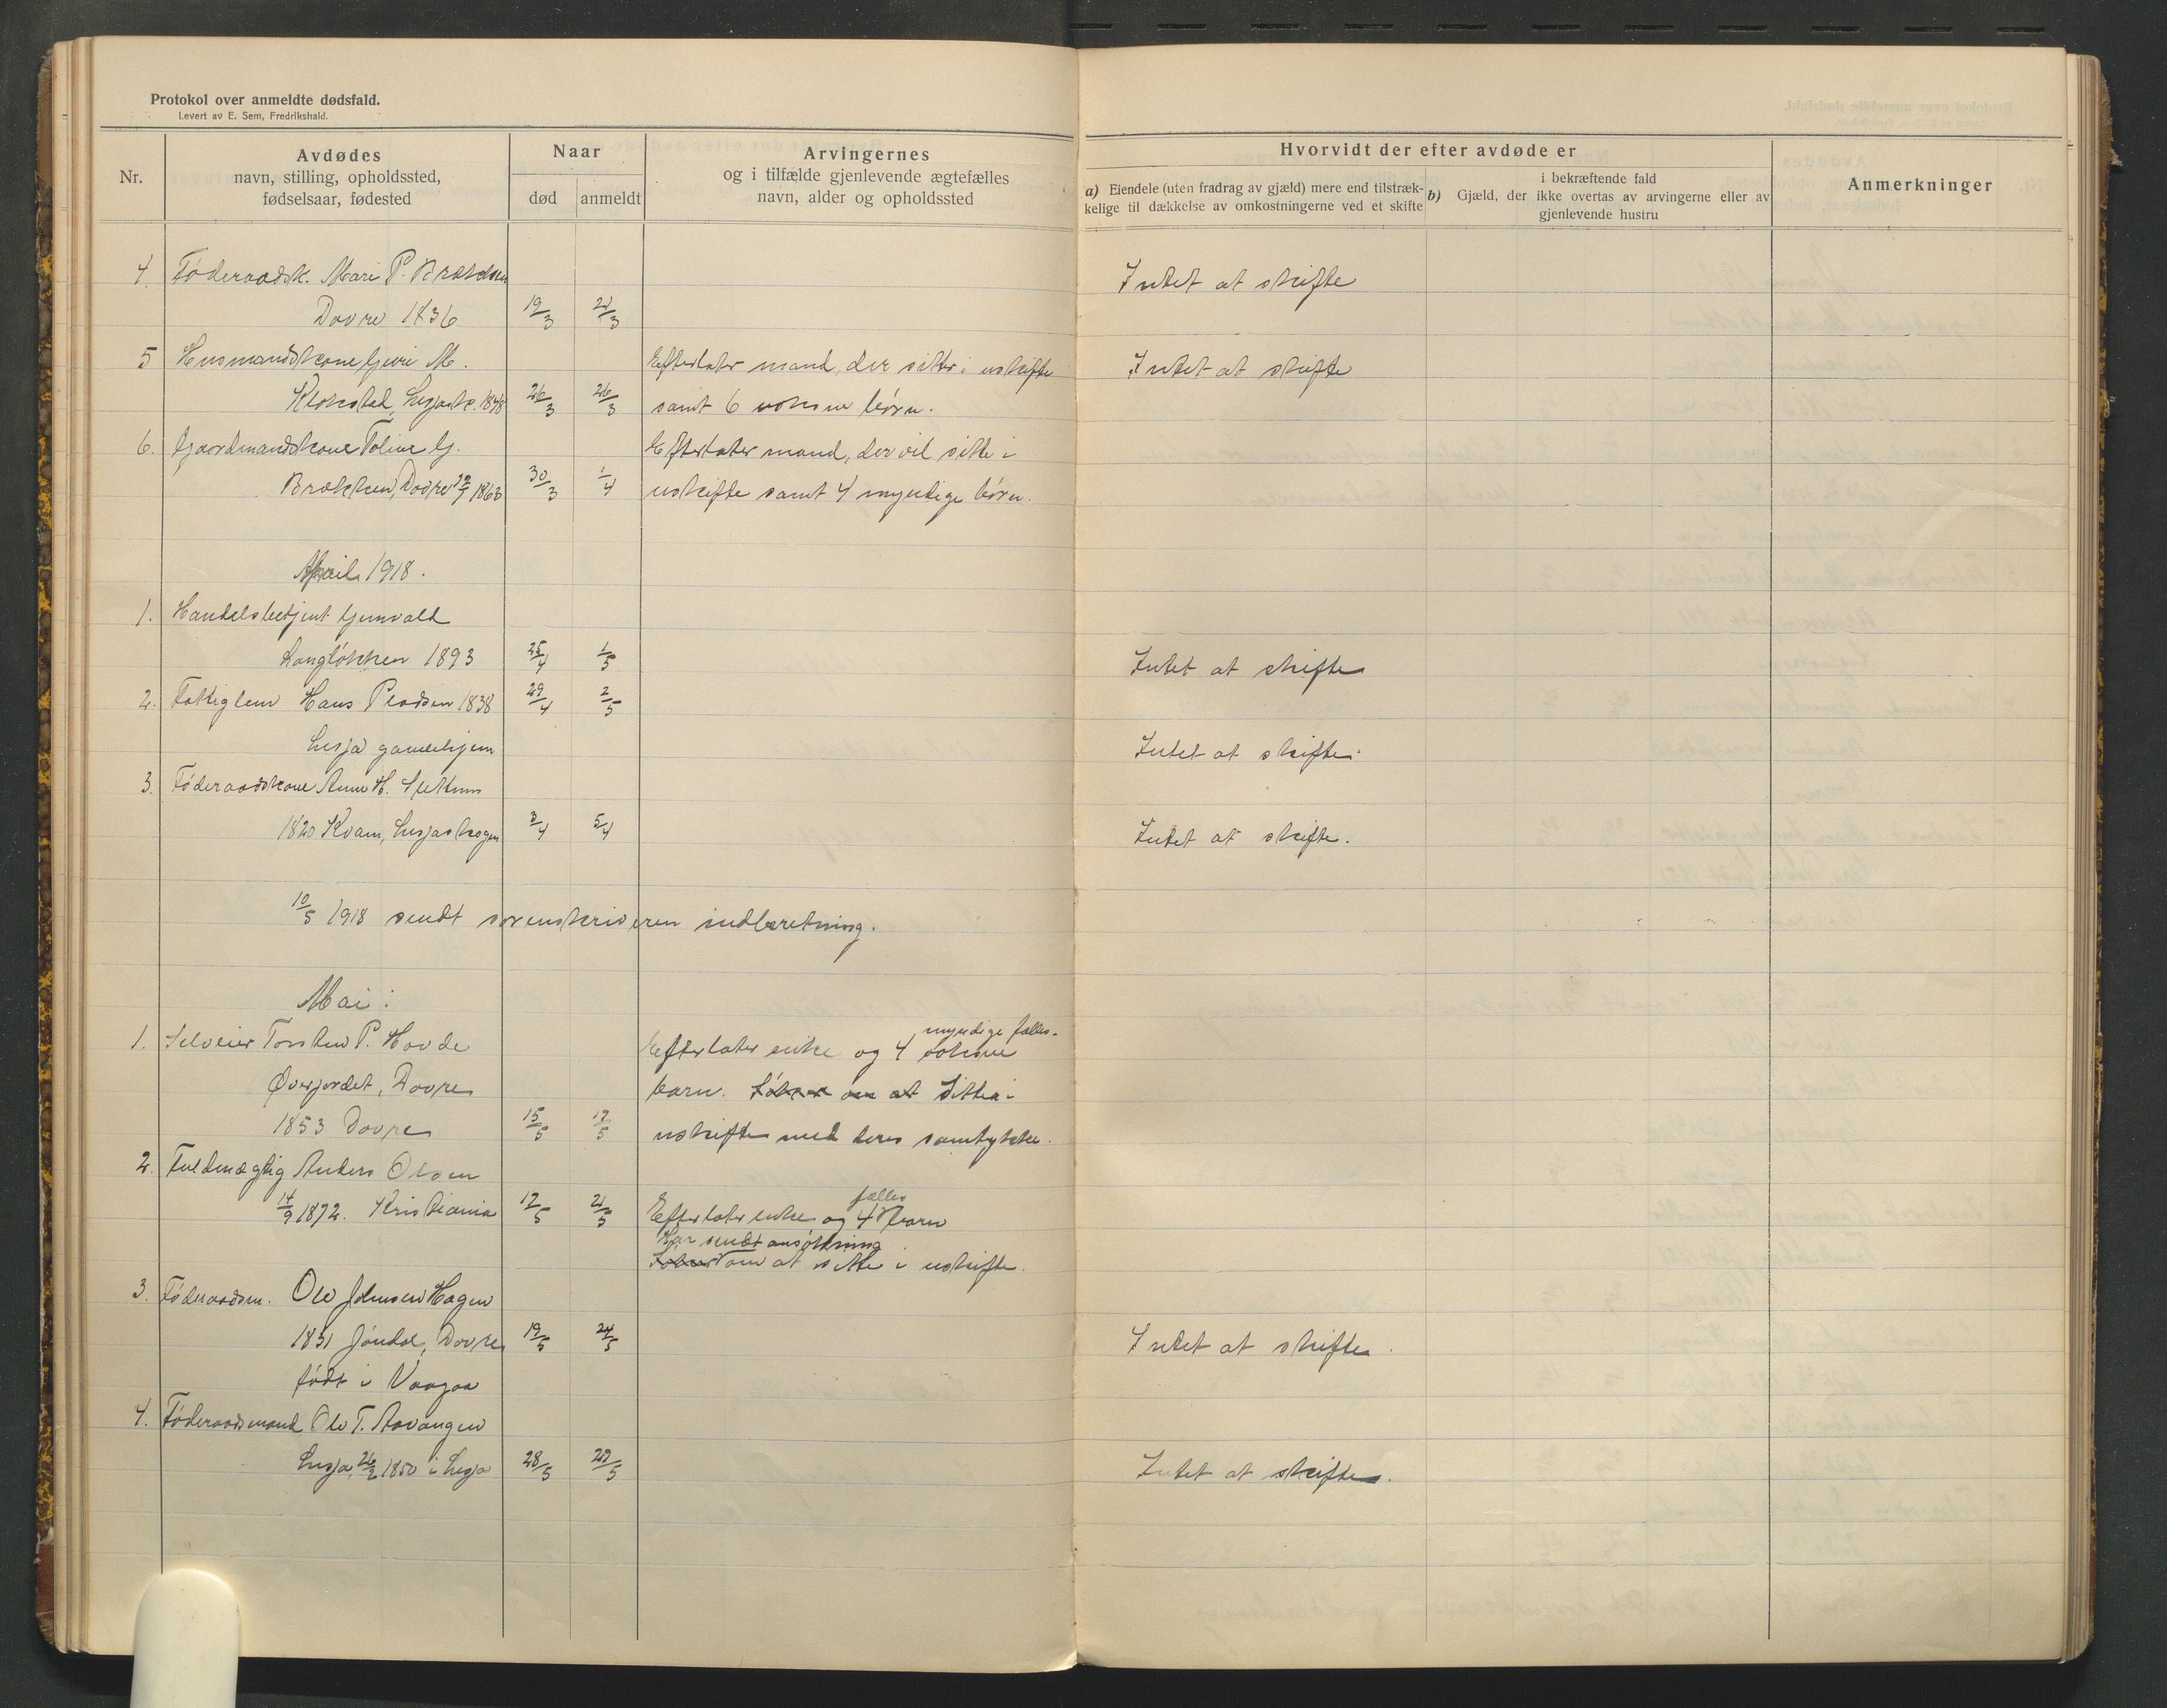 Protokol over anmeldte dødsfald.
Levert av E. Sem, Fredrikshald.
Nr.
Avdødes
navn, stilling, opholdssted,
fødselsaar, fødested
Naar
død
anmeldt
Arvingernes
og i tilfælde gjenlevende ægtefælles
navn, alder og opholdssted
Hvorvidt der efter avdøde er
a) Eiendele (uten fradrag av gjæld) mere end tilstræk-
kelige til dækkelse av omkostningerne ved et skifte
i bekræftende fald
b) Gjæld, der ikke overtas av arvingerne eller av
gjenlevende hustru
Anmerkninger
4. Føderaadsk. Mari P.
Intet at skifte
Dovre 1836 19/3 21/3
5 Husmandskone Guri M. Efterlater mand, der sitter i uskifte Intet at skifte
Lesjask. 1848 26/3 26/3 samt 6 voksne børn.
6. Gaardmandskone Toline G. Efterlater mand, der vil sitte i
Brækken, Dovre 1863 30/3 1/4 uskifte samt 4 myndige børn.
April 1918.
1. Handelsbetjent Gunvald
Langløkken 1893 25/4 1/5 Intet at skifte
2. Fattiglem Hans 1838 29/4 2/5
Lesja gamlehjem Intet at skifte.
3. Føderaadskone Anne H.
1820 Kvam, Lesjaskogen 3/4 5/4 Intet at skifte.
10/5 1918 sendt sorenskriveren indberetning.
Mai:
myndige fælles-
1. Selveier Torsten P. Hovde Efterlater enke og 4 voksne
Øverjordet, Dovre barn. Søker om at Sitter i
1853 Dovre 15/5 17/5 uskifte med deres samtykke.
2. Fuldmægtig Anders Olsen
fælles
14/9 1872. Kristiania 17/5 21/5 Efterlater enke og 4 barn
Har sendt ansøkning
Søker om at sitte i uskifte.
3. Føderaadsm. Ole Johnsen Hagen
1831 Jøndal, Dovre 19/5 24/5 Intet at skifte.
født i Vaagaa
4. Føderaadsmand Ole T. Aavangen
Lesja, 26/2 1850 i Lesja 28/5 28/5 Intet at skifte.